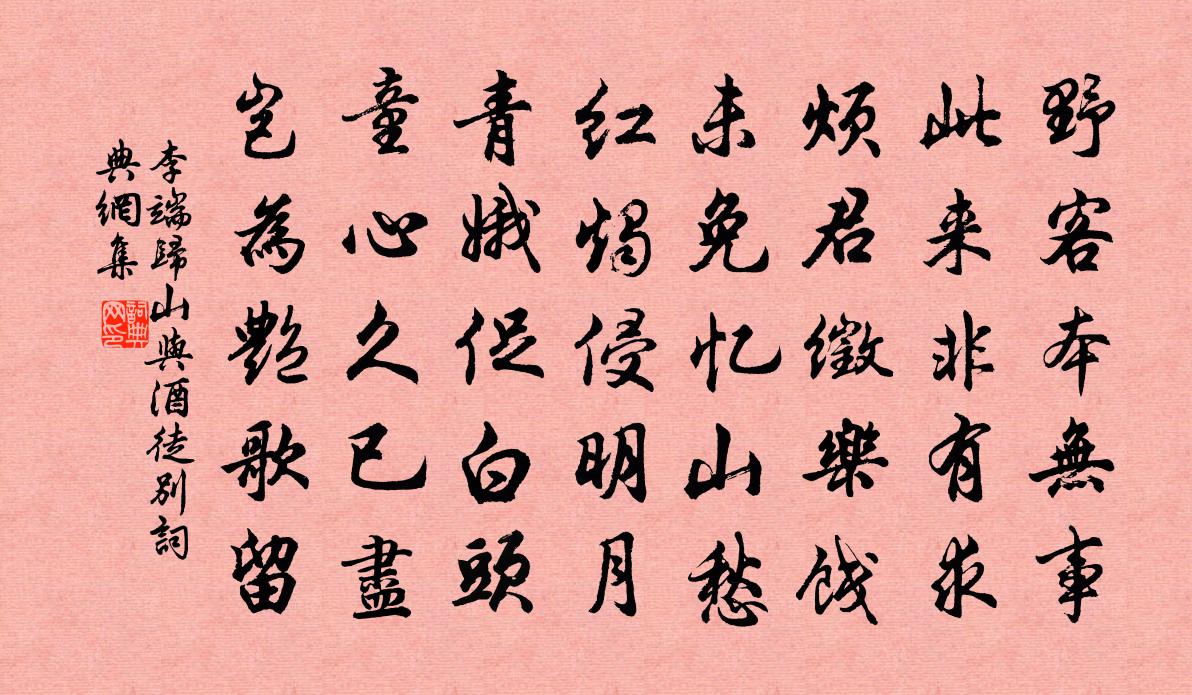 野客本無事
此来非有求
煩君徵樂餞
未免忆山愁
红燭侵明月
青娥促白頭
童心久已盡
岂為艷歌留
李端歸山與酒徒别詞
典網集
詞典网印